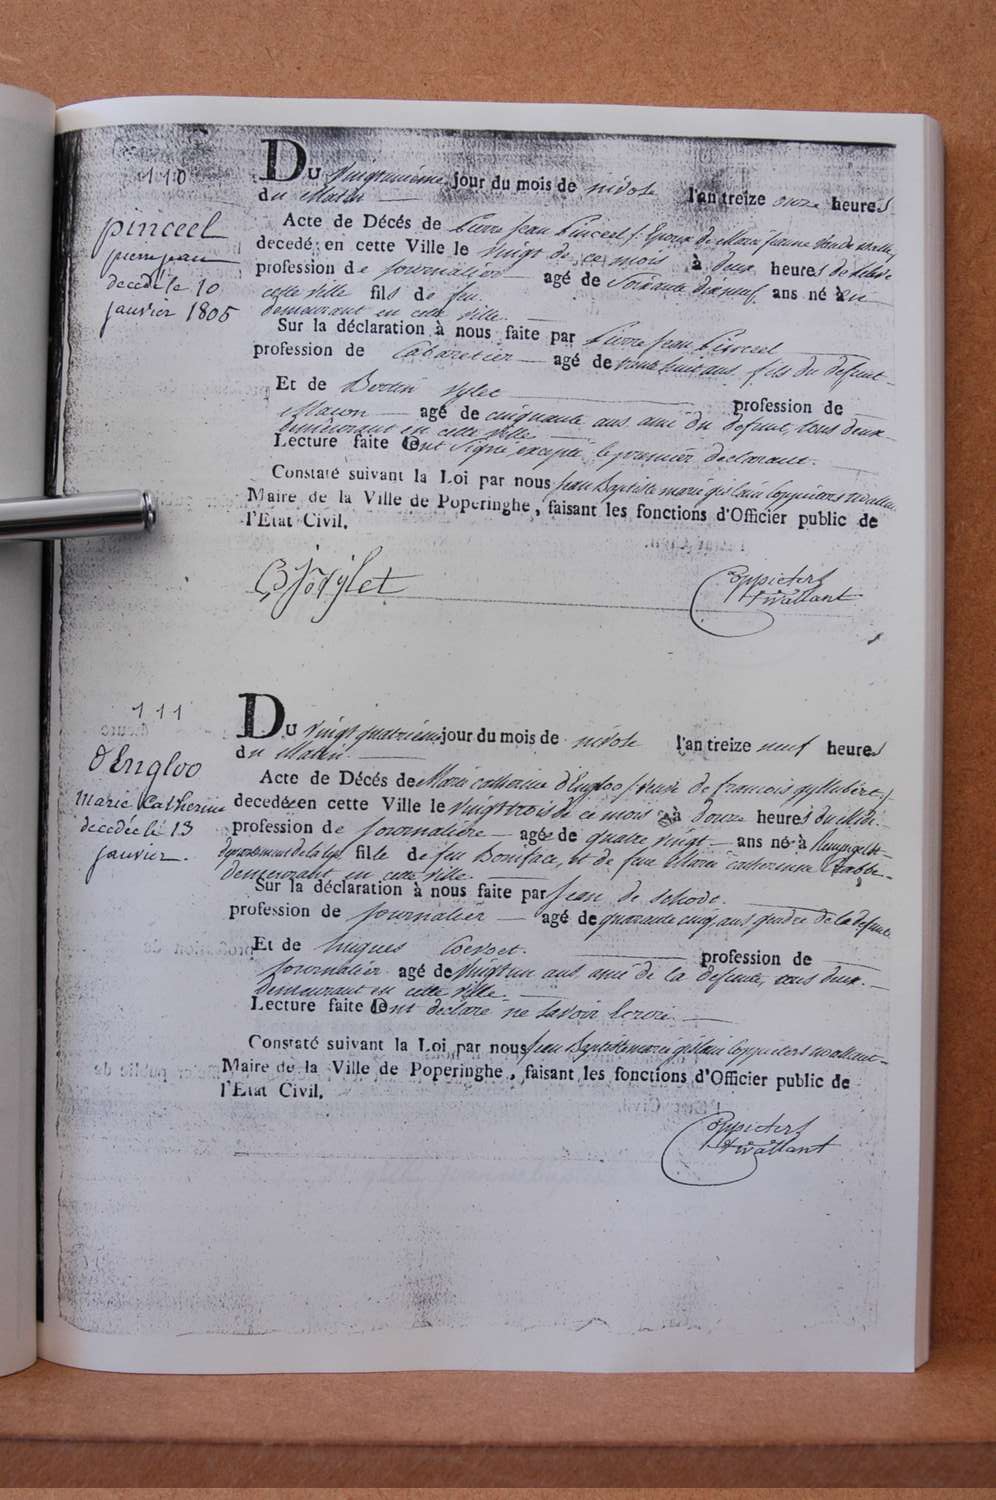 110
pinceel
pierre jean
decedé le 10
janvier 1805
Du vingtunième jour du mois de nivôse l'an treize onze heures
du Matin
Acte de Décés de Pierre Jean Pinceel / Epoux de Marie jeanne
decedé en cette Ville le vingt de ce mois à deux heures de
profession de journalier agé de Soixante dixneuf ans né à en
cette ville fils de feu
demeurant en cette ville.
Sur la déclaration à nous faite par Pierre Jean Pinceel
profession de Cabaretier agé de trente huit ans fils du defunt
Et de Bertin Sylet profession de
Macon agé de cinquante ans ami du defunt, tous deux
demeurant en cette ville
Lecture faite ont Signé excepté le premier declarant.
Constaté suivant la Loi par nous Jean Baptiste marie gislain Coppieters twallant
Maire de la Ville de Poperinghe, faisant les fonctions d'Officier public de
l'Etat Civil.
Coppieters
twallant
111
d'Engloo
Marie Catherine
decedée le 13
janvier.
Du vingt quatrième jour du mois de nivôse l'an treize neuf heures
du Matin.
Acte de Décés de Marie catherine d'Engloo / veuve de francois
decedée en cette Ville le vingt trois de ce mois à Douze heures du Midi
profession de journalière agée de quatre vingt ans né à
departement de la Lys fille de feu Boniface, et de feue Marie catherine
demeurant en cette ville.
Sur la déclaration à nous faite par Jean de Schode.
profession de journalier agé de quarante cinq ans gendre de la defunte
Et de hugues profession de
journalier agé de vingt un ans ami de la defunte, tous deux
demeurant en cette ville.
Lecture faite ont declaré ne savoir Ecrire.
Constaté suivant la Loi par nous Jean Baptiste marie gislain Coppieters twallant
Maire de la Ville de Poperinghe, faisant les fonctions d'Officier public de
l'Etat Civil.
Coppieters
twallant